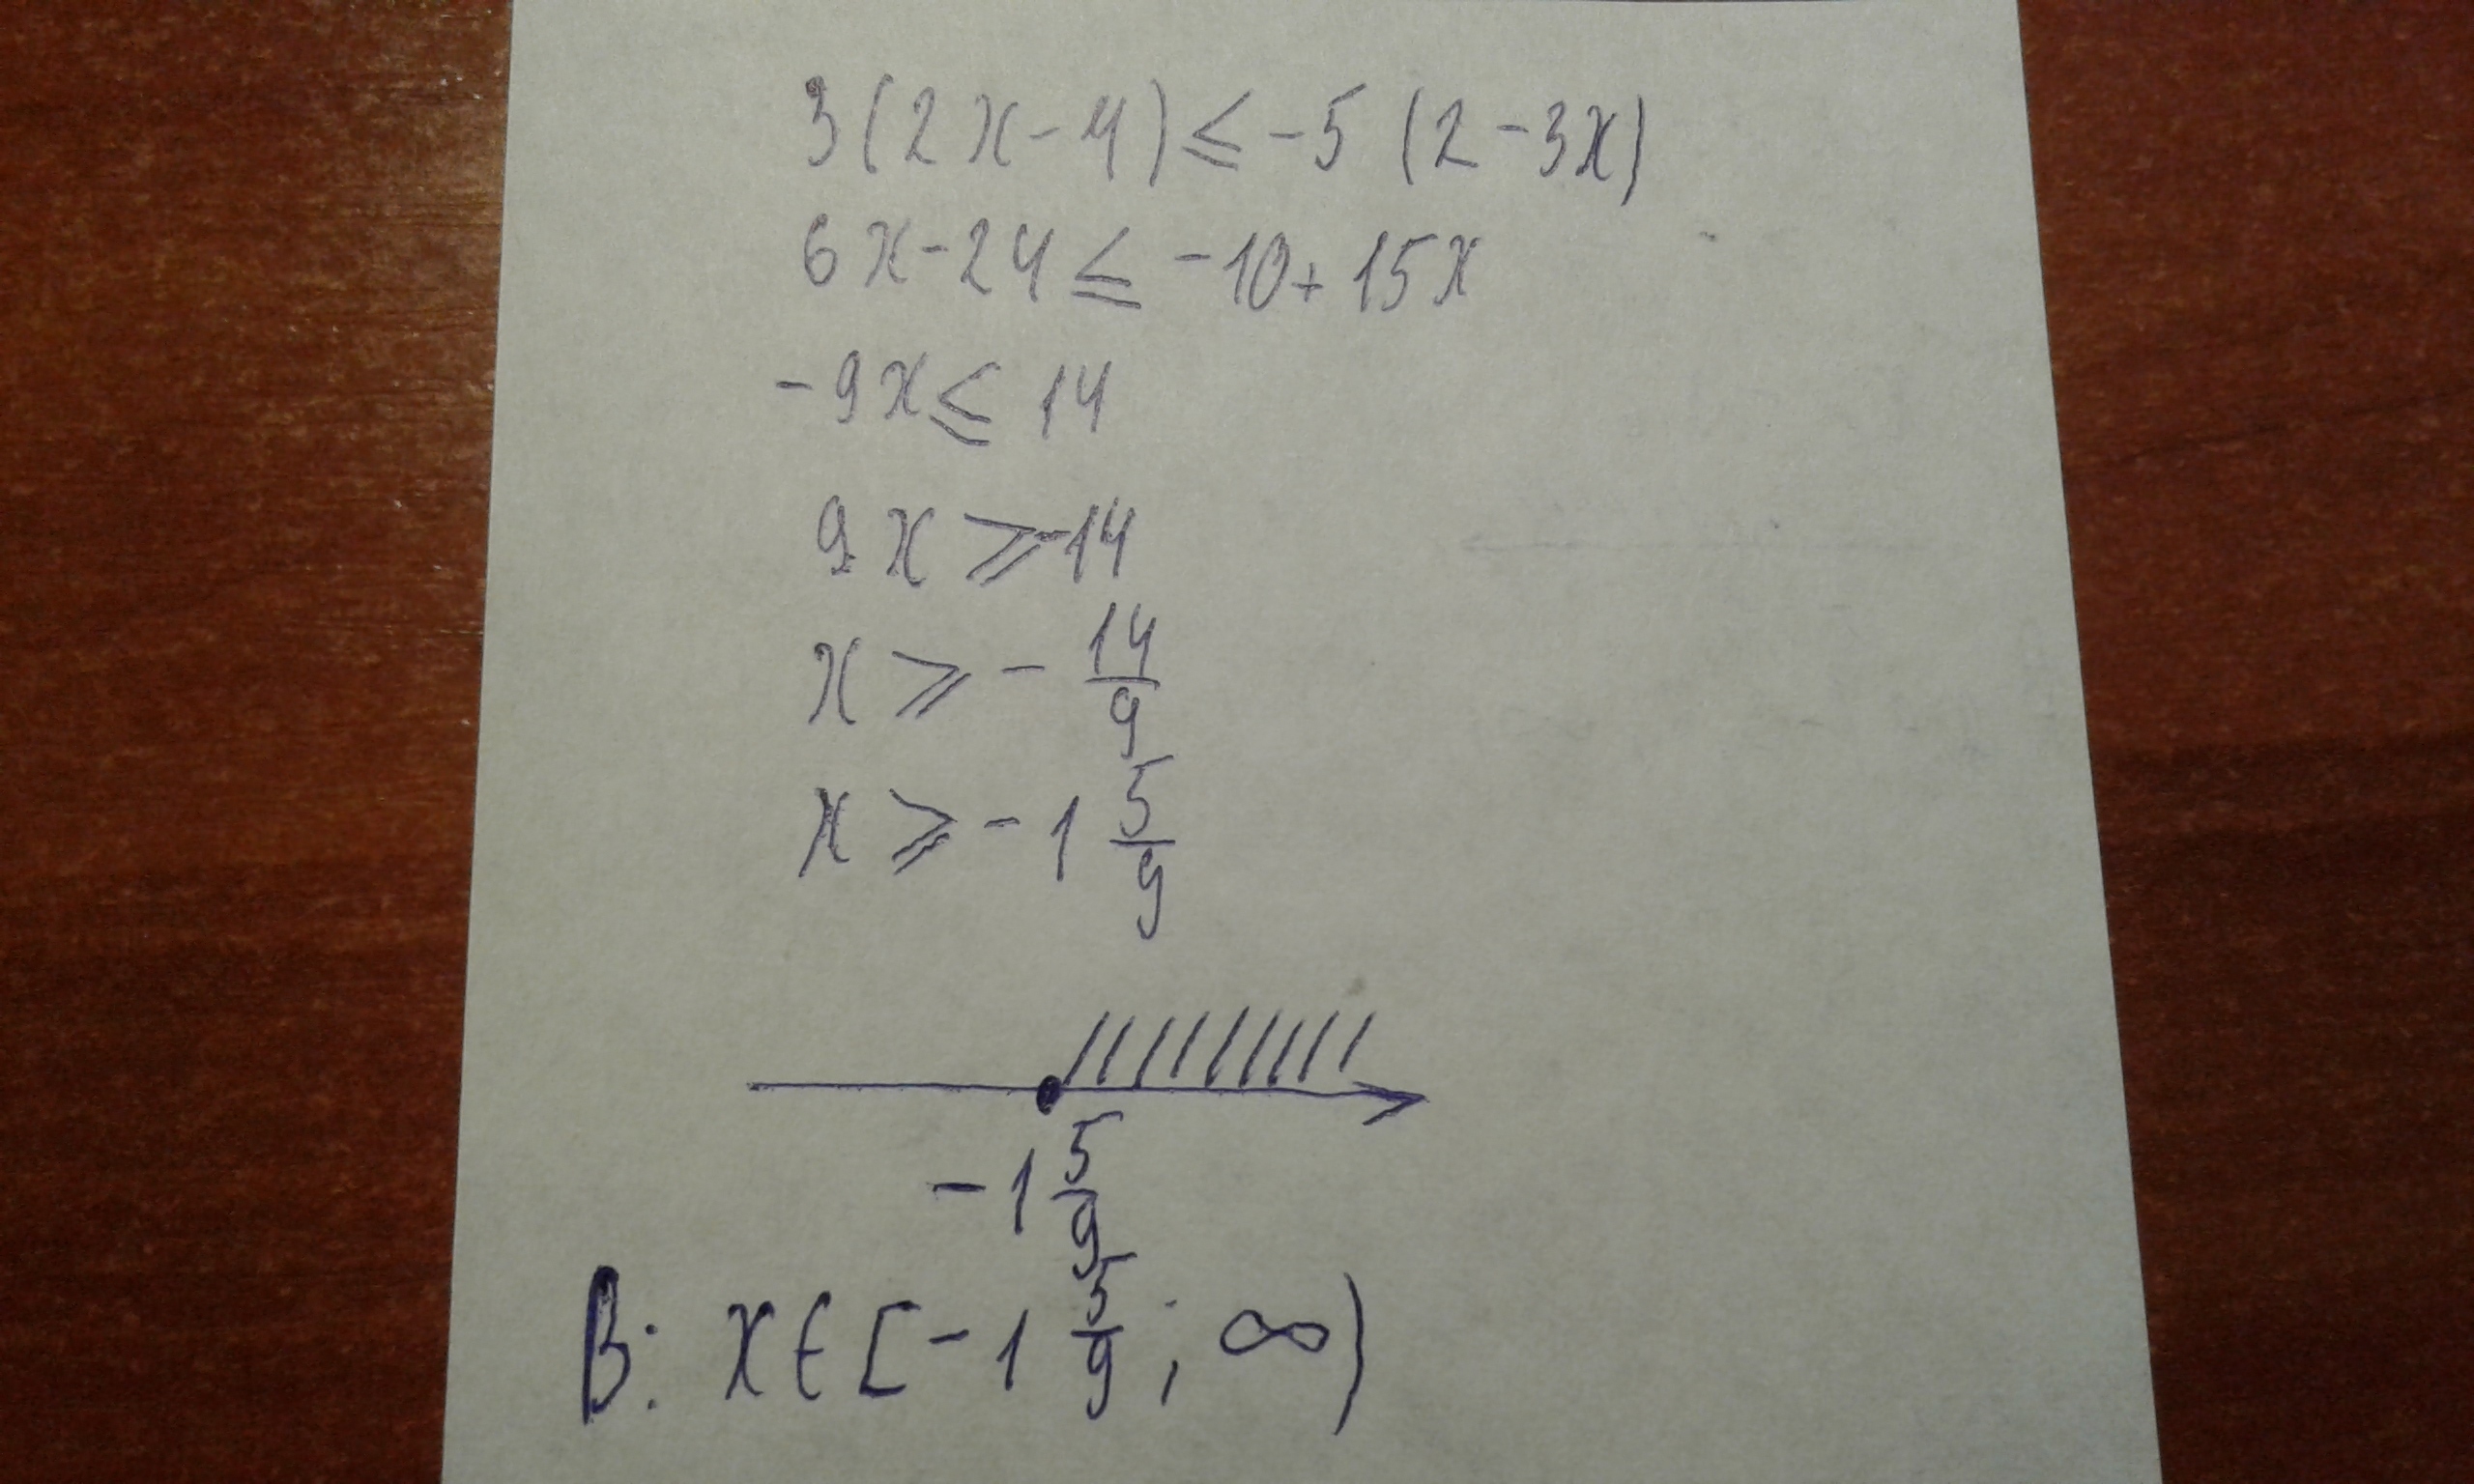 3(2x-4)≤-5(2-3x)
6x-24≤-10+15x
-9x≤14
9x≥-14
x≥-14/9
x≥-1 5/9
-1 5/9
В: x∈[-1 5/9; ∞)